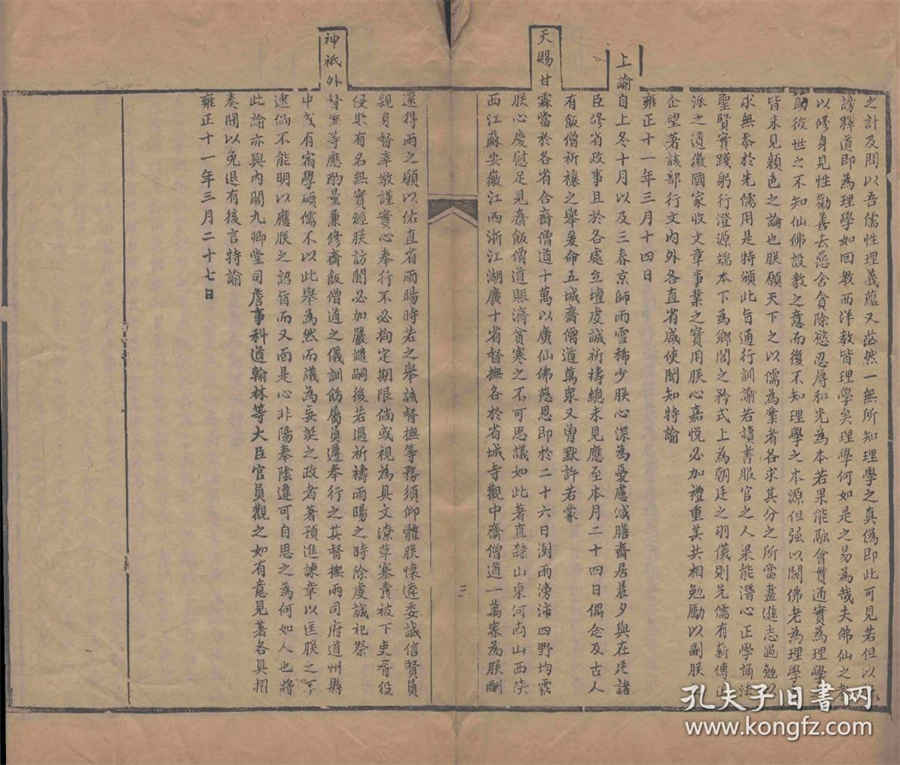 之計及間以吾儒性理義蘊又茫然一無所知理學之真偽即此可見若但以
謗釋道即為理學如回教西洋教皆理學矣理學何如是之易為哉夫佛仙之
以修身見性勸善去惡舍貪除慾忍辱和光為本若果能融會貫通實為理學
助彼世之不知仙佛設教之意而復不知理學之本源但強以闢佛老為理學
皆未見顏色之論也朕願天下之以儒為業者各求其分之所當盡進志過勉以
求無忝於先儒用是特頒此旨通行訓諭若讀書服官之人果能潛心正學誦法
聖賢實踐躬行澄源端本下為鄉閭之矜式上為朝廷之羽儀則先儒有薪傳
派之適徵國家收文章事業之實用朕心嘉悅必加禮重其共相勉勵以副朕
企望著該部行文內外各直省咸使聞知特諭
雍正十一年三月十四日
上諭自上冬十月以及三春京師雨雪稀少朕心深為憂慮減膳齋居晨夕與在廷諸
臣修省政事且於各處立壇虔誠祈禱總未見應至本月二十四日偶念及古人
有飯僧祈禳之舉爰命五城齋僧道萬眾又曾默許若蒙
天賜甘霖當於各省合齋僧道十萬以廣仙佛慈恩即於二十六日澍雨滂沛四野均霑
朕心慶慰足見齋飯僧道賑濟貧寒之不可思議如此著直隸山東河南山西陝
西江蘇安徽江西浙江湖廣十省督撫各於省城寺觀中齋僧道一萬眾為朕酬
二
還得雨之願以佑直省雨暘時若之舉該督撫等務須仰體朕懷遴委誠信賢員
親身督率敬謹實心奉行不必拘定期限倘或視為具文潦草塞責被下吏胥役
侵欺有名無實經朕訪聞必加嚴譴嗣後若遇祈禱雨暘之時除虔誠祀祭
神祇外督撫等應酌量兼修齋飯僧道之儀訓飭屬員遵奉行之其督撫兩司府道州縣
中或有宿學碩儒不以此舉為然而議為妄誕之政者著預進諫章以匡朕之不
逮倘不能明以應朕之詔旨而又面是心非陽奉陰違可自思之為何如人也將
此諭亦與內閣九卿堂司詹事科道翰林等大臣官員觀之如有意見著各具摺
奏聞以免退有後言特諭
雍正十一年三月二十七日
孔夫子旧书网
www.kongfz.com